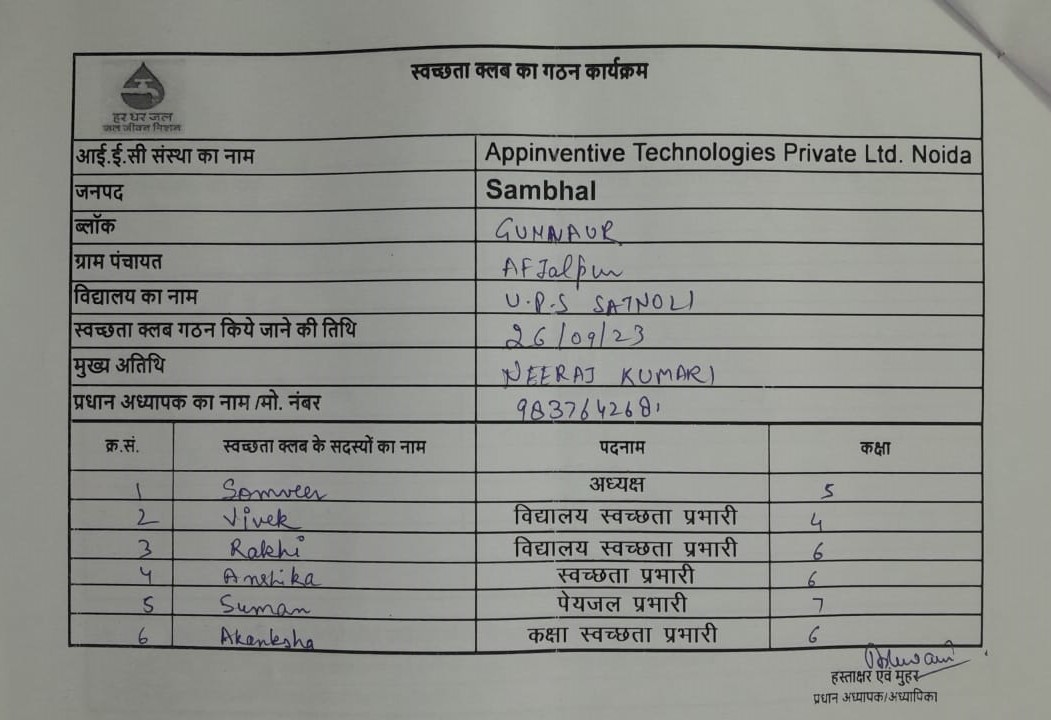 स्वच्छता क्लब का गठन कार्यक्रम
हर घर जल
जल जीवन मिशन
आई.ई.सी संस्था का नाम Appinventive Technologies Private Ltd. Noida
जनपद Sambhal
ब्लॉक GUNNAUR
ग्राम पंचायत AFJalpur
विद्यालय का नाम U.P.S SATNOLI
स्वच्छता क्लब गठन किये जाने की तिथि 26/09/23
मुख्य अतिथि NEERAJ KUMARI
प्रधान अध्यापक का नाम /मो. नंबर 9837642681
क्र.सं. स्वच्छता क्लब के सदस्यों का नाम पदनाम कक्षा
1 Somveer अध्यक्ष 5
2 Vivek विद्यालय स्वच्छता प्रभारी 4
3 Rakhi विद्यालय स्वच्छता प्रभारी 6
4 Anshika स्वच्छता प्रभारी 6
5 Suman पेयजल प्रभारी 7
6 Akanksha कक्षा स्वच्छता प्रभारी 6
हस्ताक्षर एवं मुहर
प्रधान अध्यापक/अध्यापिका